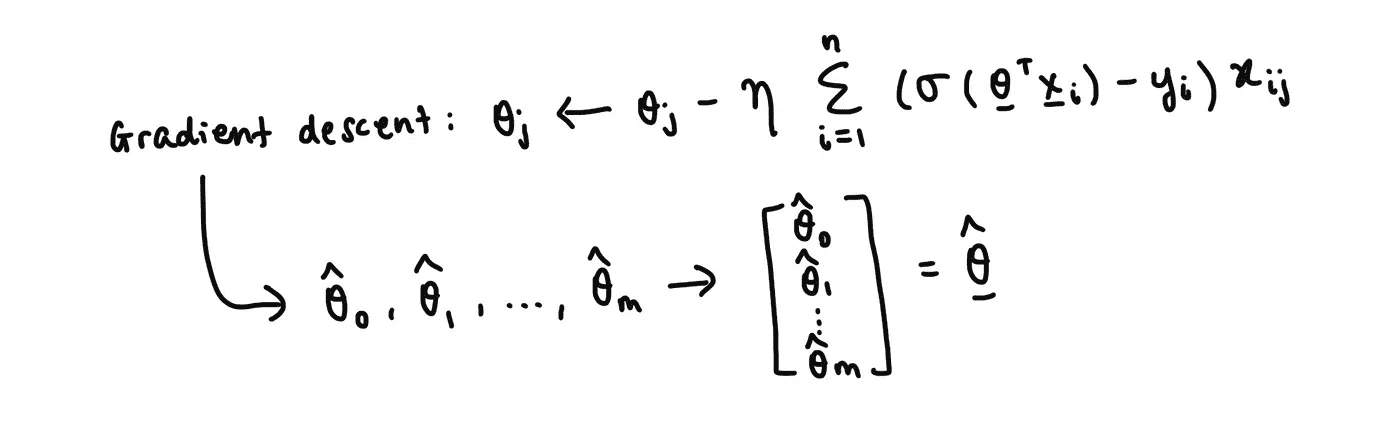 Gradient descent: θ_j ← θ_j - η Σ_{i=1}^{n} (σ(θ̲^T x̲_i) - y_i) x_{ij}
→ θ̂_0, θ̂_1, ..., θ̂_m → [θ̂_0 θ̂_1 ⋮ θ̂_m] = θ̲̂